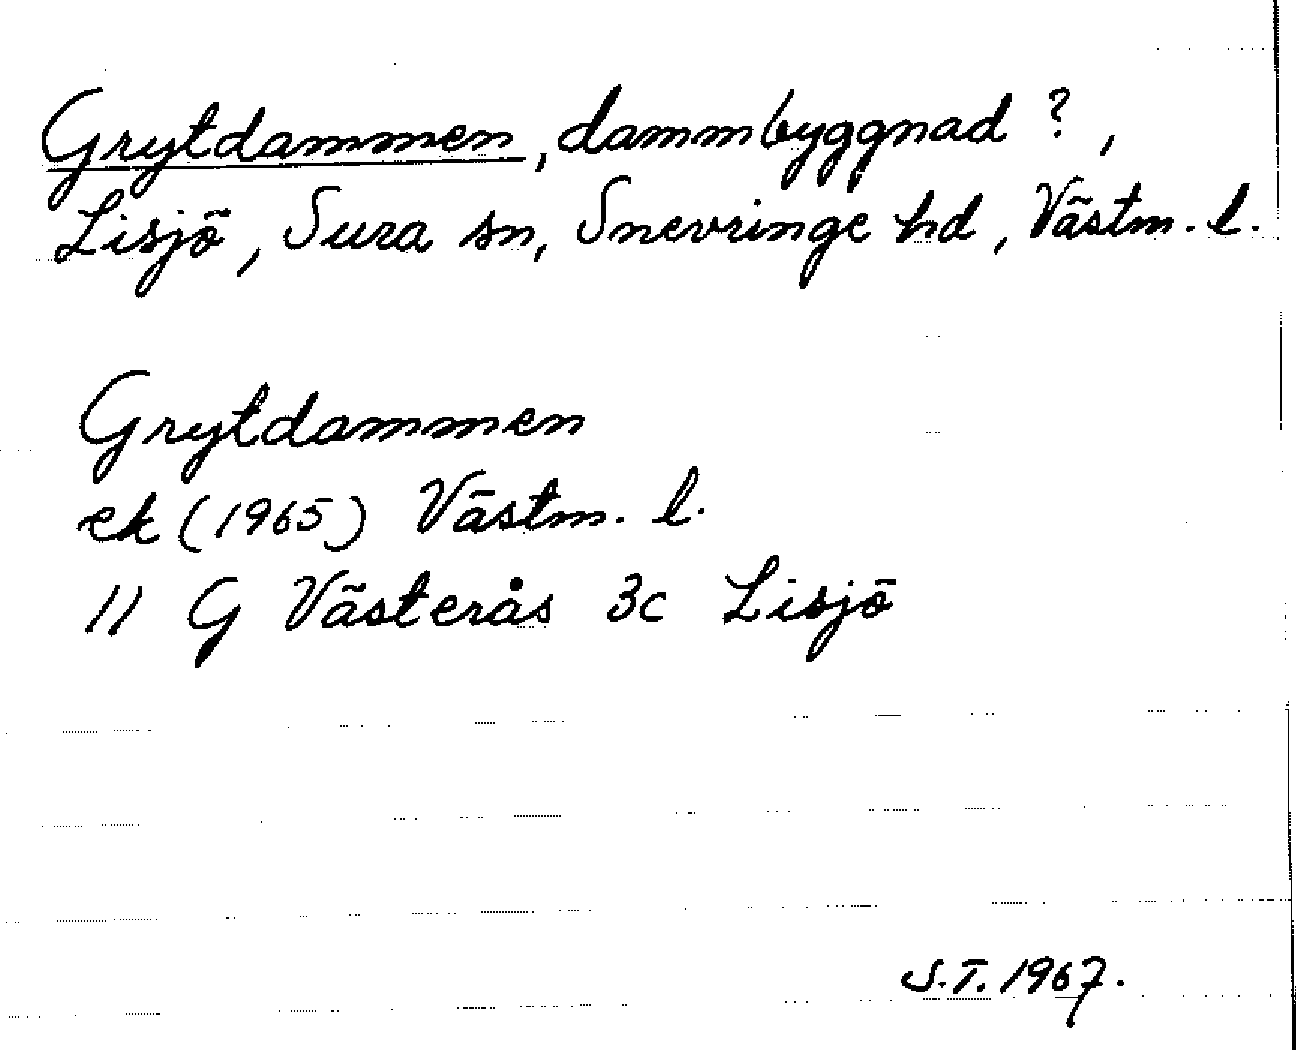 Grytdammen, dammbyggnad ?,
Lisjö, Sura sn, Snevringe hd, Västm. l.
Grytdammen
ek (1965) Västm. l.
11 G Västerås 3c Lisjö
S.T. 1967.